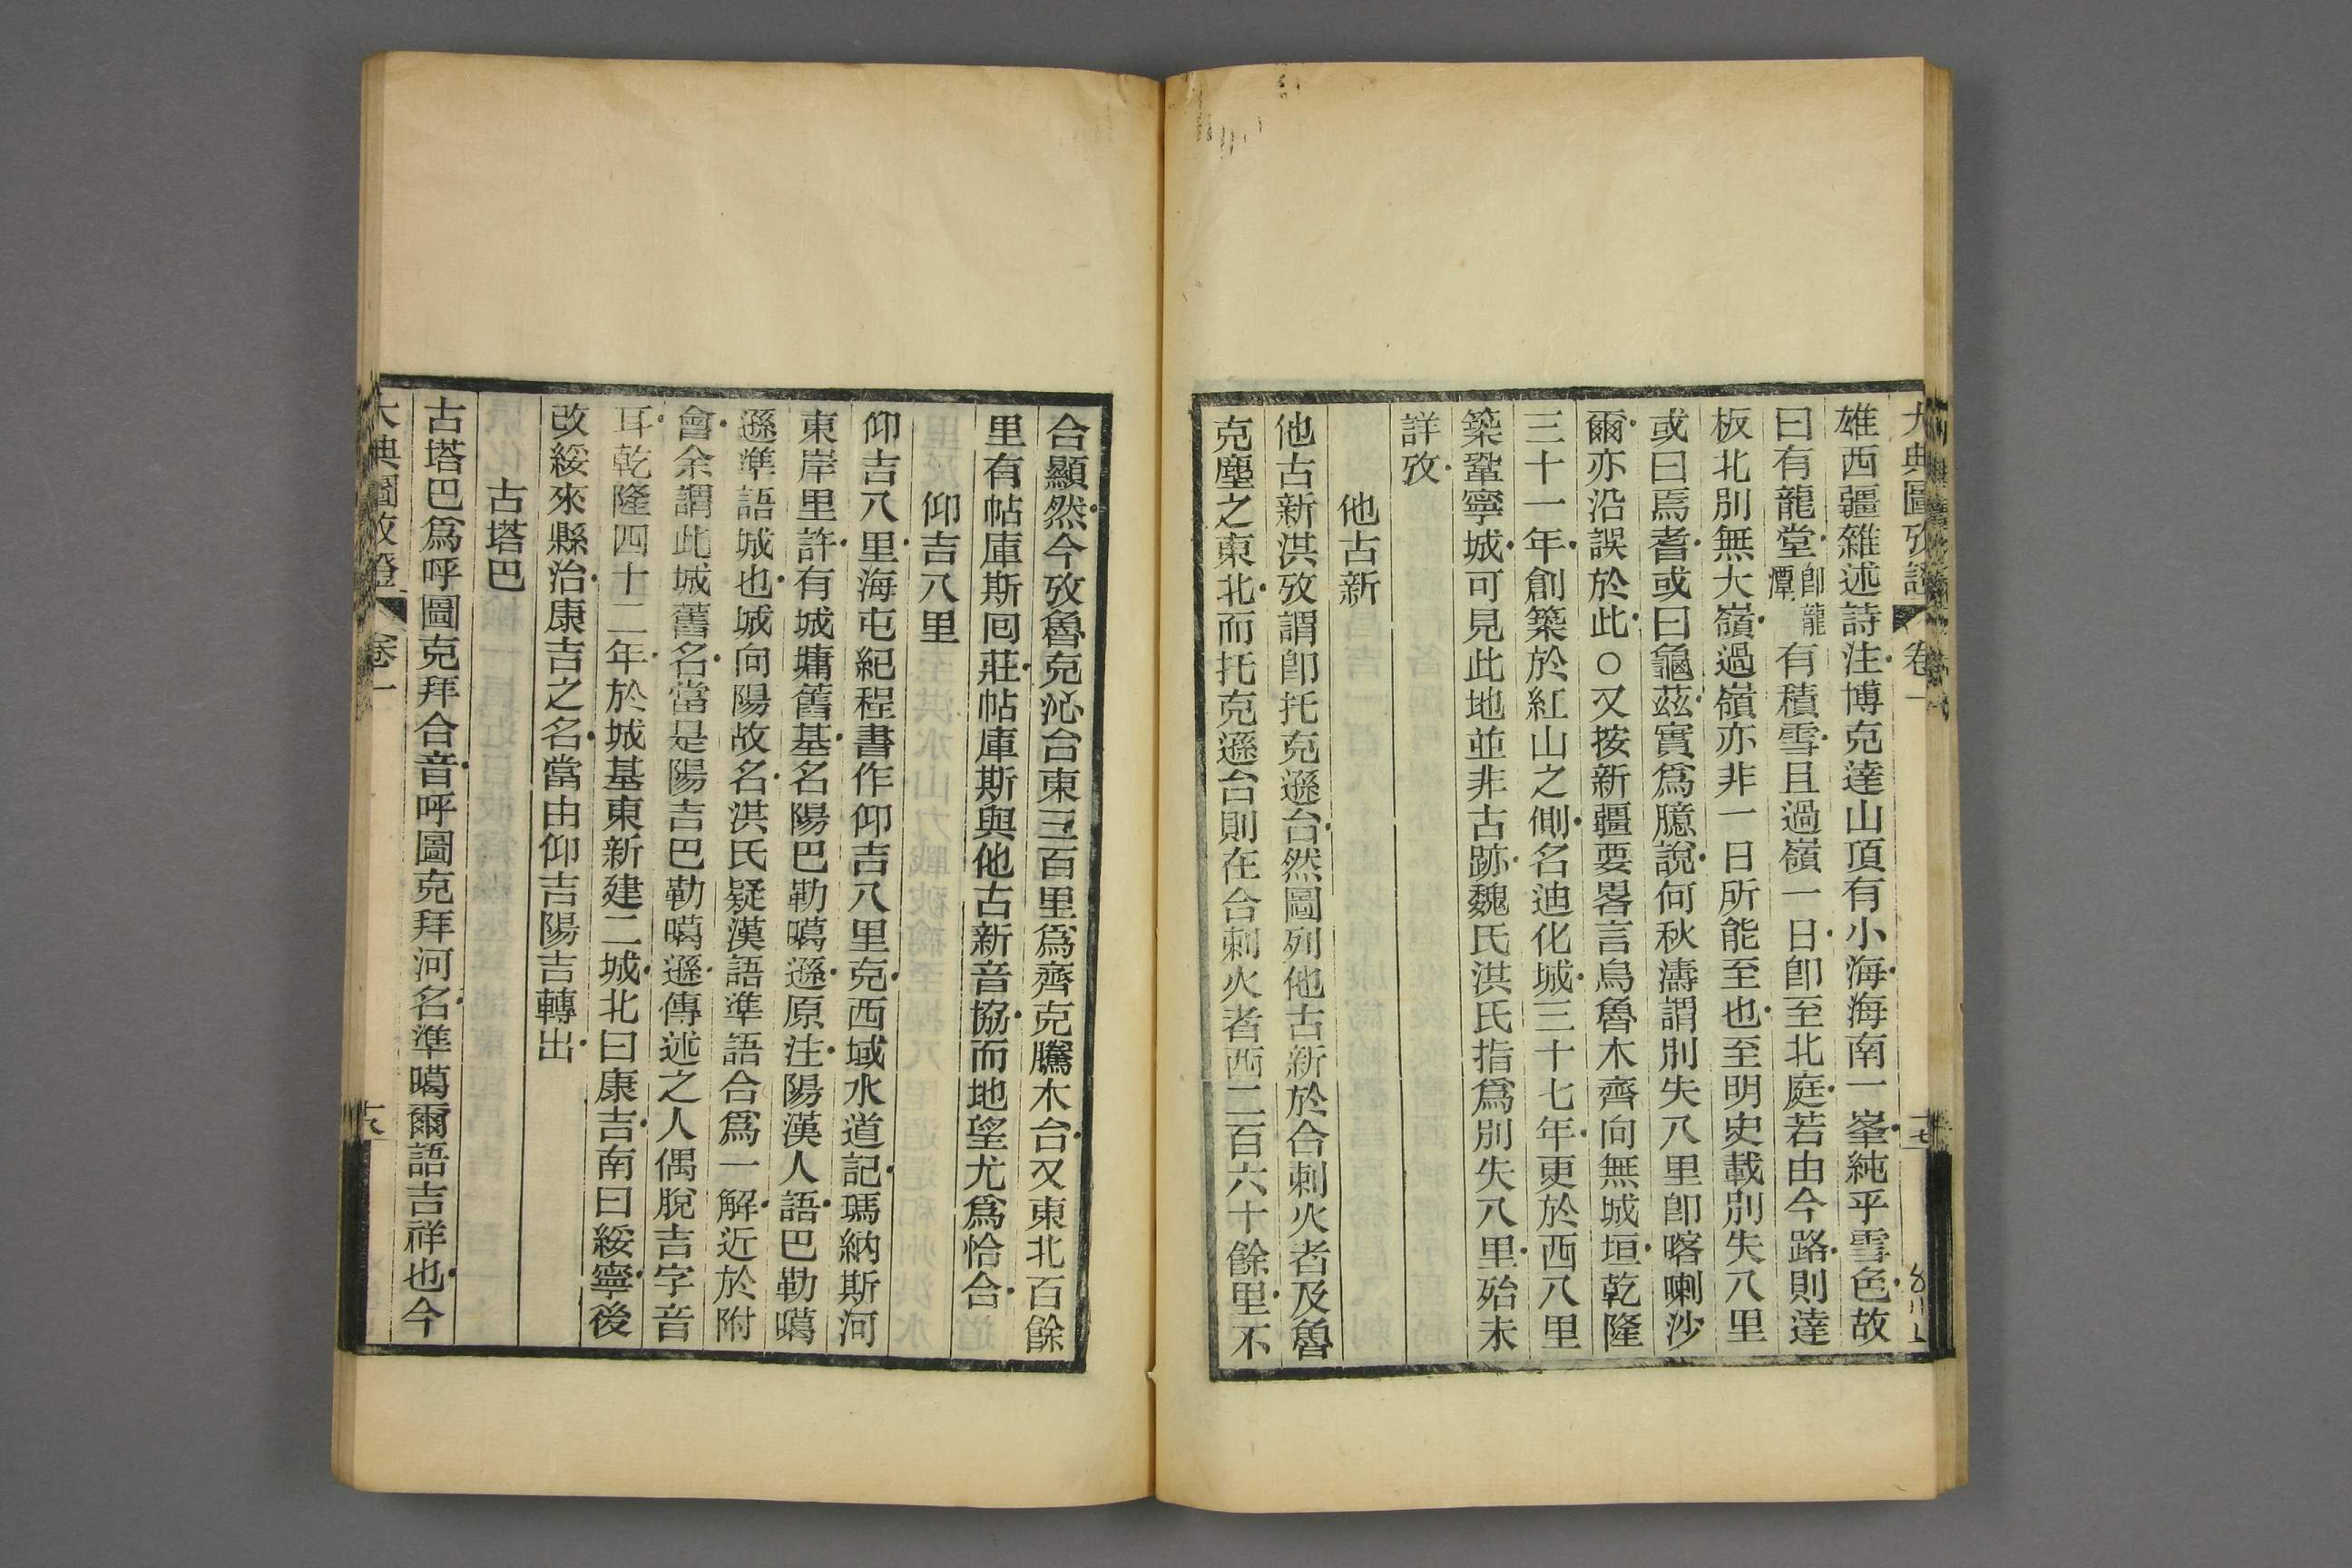 大典圖攷證 卷一 十七
雄西疆雜述詩注博克達山頂有小海海南一峯純乎雪色故
曰有龍堂卽龍潭有積雪且過嶺一日卽至北庭若由今路則達
板北別無大嶺過嶺亦非一日所能至也至明史載別失八里
或曰焉耆或曰龜茲實爲臆說何秋濤謂別失八里卽喀喇沙
爾亦沿誤於此○又按新疆要畧言烏魯木齊向無城垣乾隆
三十一年創築於紅山之側名迪化城三十七年更於西八里
築鞏寧城可見此地並非古跡魏氏洪氏指爲別失八里殆未
詳攷
他古新
他古新洪攷謂卽托克遜台然圖列他古新於合刺火者及魯
克塵之東北而托克遜台則在合刺火者西二百六十餘里不
合顯然今攷魯克沁台東三百里爲齊克騰木台又東北百餘
里有帖庫斯回莊帖庫斯與他古新音協而地望尤爲恰合
仰吉八里
仰吉八里海屯紀程書作仰吉八里克西域水道記瑪納斯河
東岸里許有城墉舊基名陽巴勒噶遜原注陽漢人語巴勒噶
遜準語城也城向陽故名洪氏疑漢語準語合爲一解近於附
會余謂此城舊名當是陽吉巴勒噶遜傳述之人偶脫吉字音
耳乾隆四十二年於城基東新建二城北曰康吉南曰綏寧後
改綏來縣治康吉之名當由仰吉陽吉轉出
古塔巴
古塔巴爲呼圖克拜合音呼圖克拜河名準噶爾語吉祥也今
大典圖攷證 卷一 十八